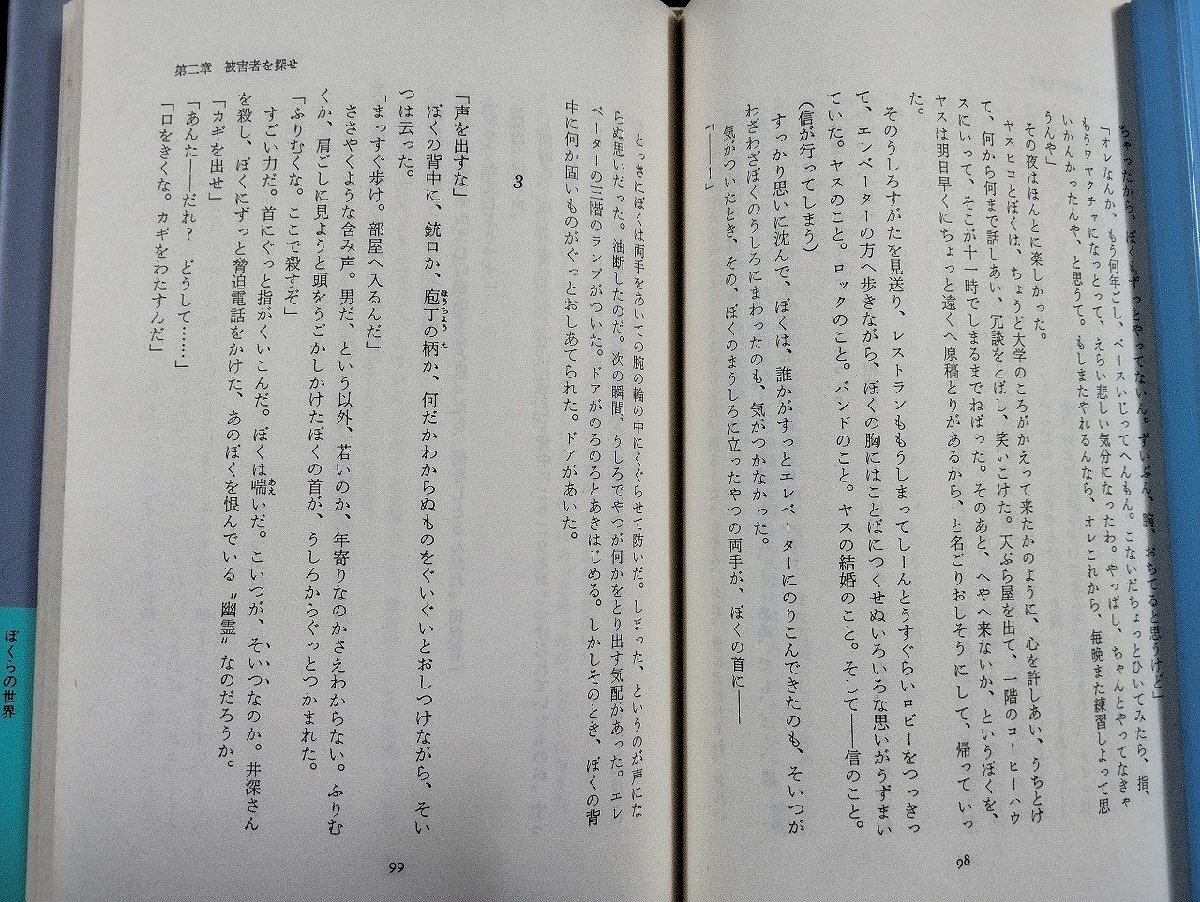 ちゃったから、ずっとやってないん。ずいぶん、腕、おちてると思うけど」
「オレなんか、もう何年ごし、ベースいじってへんもん。こないだちょっとひいてみたら、指、
もうワヤクチャになっとって、えらい悲しい気分になったわ。やっぱし、ちゃんとやってなきゃ
いかんかったんや、と思うて。もしまたやれるんなら、オレこれから、毎晩また練習しよって思
うんや」
その夜はほんとに楽しかった。
ヤスヒコとぼくは、ちょうど大学のころがかえって来たかのように、心を許しあい、うちとけ
て、何から何まで話しあい、冗談をとばし、笑いこけた。天ぷら屋を出て、一階のコーヒーハウ
スにいって、そこが十一時でしまるまでねばった。そのあと、へやへ来ないか、というぼくを、
ヤスは明日早くにちょっと遠くへ原稿とりがあるから、と名ごりおしそうにして、帰っていっ
た。
そのうしろすがたを見送り、レストランももうしまってしーんとうすぐらいロビーをつっきっ
て、エレベーターの方へ歩きながら、ぼくの胸にはことばにつくせぬいろいろな思いがうずまい
ていた。ヤスのこと。ロックのこと。バンドのこと。ヤスの結婚のこと。そして――信のこと。
（信が行ってしまう）
すっかり思いに沈んで、ぼくは、誰かがすっとエレベーターにのりこんできたのも、そいつが
わざわざぼくのうしろにまわったのも、気がつかなかった。
気がついたとき、その、ぼくのまうしろに立ったやつの両手が、ぼくの首に――
「――――」
98
とっさにぼくは両手をあいての腕の輪の中にくぐらせて防いだ。しまった、というのが声にな
らぬ思いだった。油断したのだ。次の瞬間、うしろでやつが何かをとり出す気配があった。エレ
ベーターの三階のランプがついた。ドアがのろのろとあきはじめる。しかしそのとき、ぼくの背
中に何か固いものがぐっとおしあてられた。ドアがあいた。
3
「声を出すな」
ぼくの背中に、銃口か、庖丁の柄か、何だかわからぬものをぐいぐいとおしつけながら、そい
つは云った。
「まっすぐ歩け。部屋へ入るんだ」
ささやくような含み声。男だ、という以外、若いのか、年寄りなのかさえわからない。ふりむ
くか、肩ごしに見ようと頭をうごかしかけたぼくの首が、うしろからぐっとつかまれた。
「ふりむくな。ここで殺すぞ」
すごい力だ。首にぐっと指がくいこんだ。ぼくは喘いだ。こいつが、そいつなのか。井深さん
を殺し、ぼくにずっと脅迫電話をかけた、あのぼくを恨んでいる〝幽霊〟なのだろうか。
「カギを出せ」
「あんた――だれ？　どうして……」
「口をきくな。カギをわたすんだ」
第二章　被害者を探せ
99
ぼくらの世界